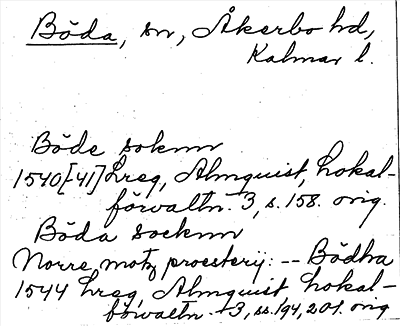 Böda, sn, Åkerbo hd,
Kalmar l.
Böde soknn
1540[41] Lreg, Almquist, Lokal-
förvaltn. 3, s. 158. orig.
Böda socknn
Norre motz proesterij: -- Bödha
1544 Lreg, Almquist Lokal-
förvaltn. 3, ss. 194, 201. orig